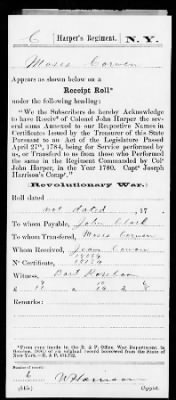 C Harper's Regiment. N.Y.
Moses Corwin
Appears as shown below on a
Receipt Roll*
under the following heading:
"We the Subscribers do hereby Acknowledge
to have Receivd of Colonel John Harper the
several sums Annexed to our Respective Names in
Certificates Issued by the Treasurer of this State
Persuant to an Act of the Legislature Passed
April 27th, 1784, being for Service performed by
us, or Transfered to us from those who Performed
the same in the Regiment Commanded by Coll
John Harper, in the Year 1780. Capt Joseph
Harrison's Comp."
Revolutionary War.
Roll dated
not dated, 17
To whom Payable, John Clark
To whom Transfered, Moses Corwin
Whom Received,
No Certificate,
Witness,
Remarks:
*From copy made in the R. & P. Office, War Department, in
of an original record borrowed from the State of
New York.—R. & P.
Number of roll:
6
(545)
Copyist.